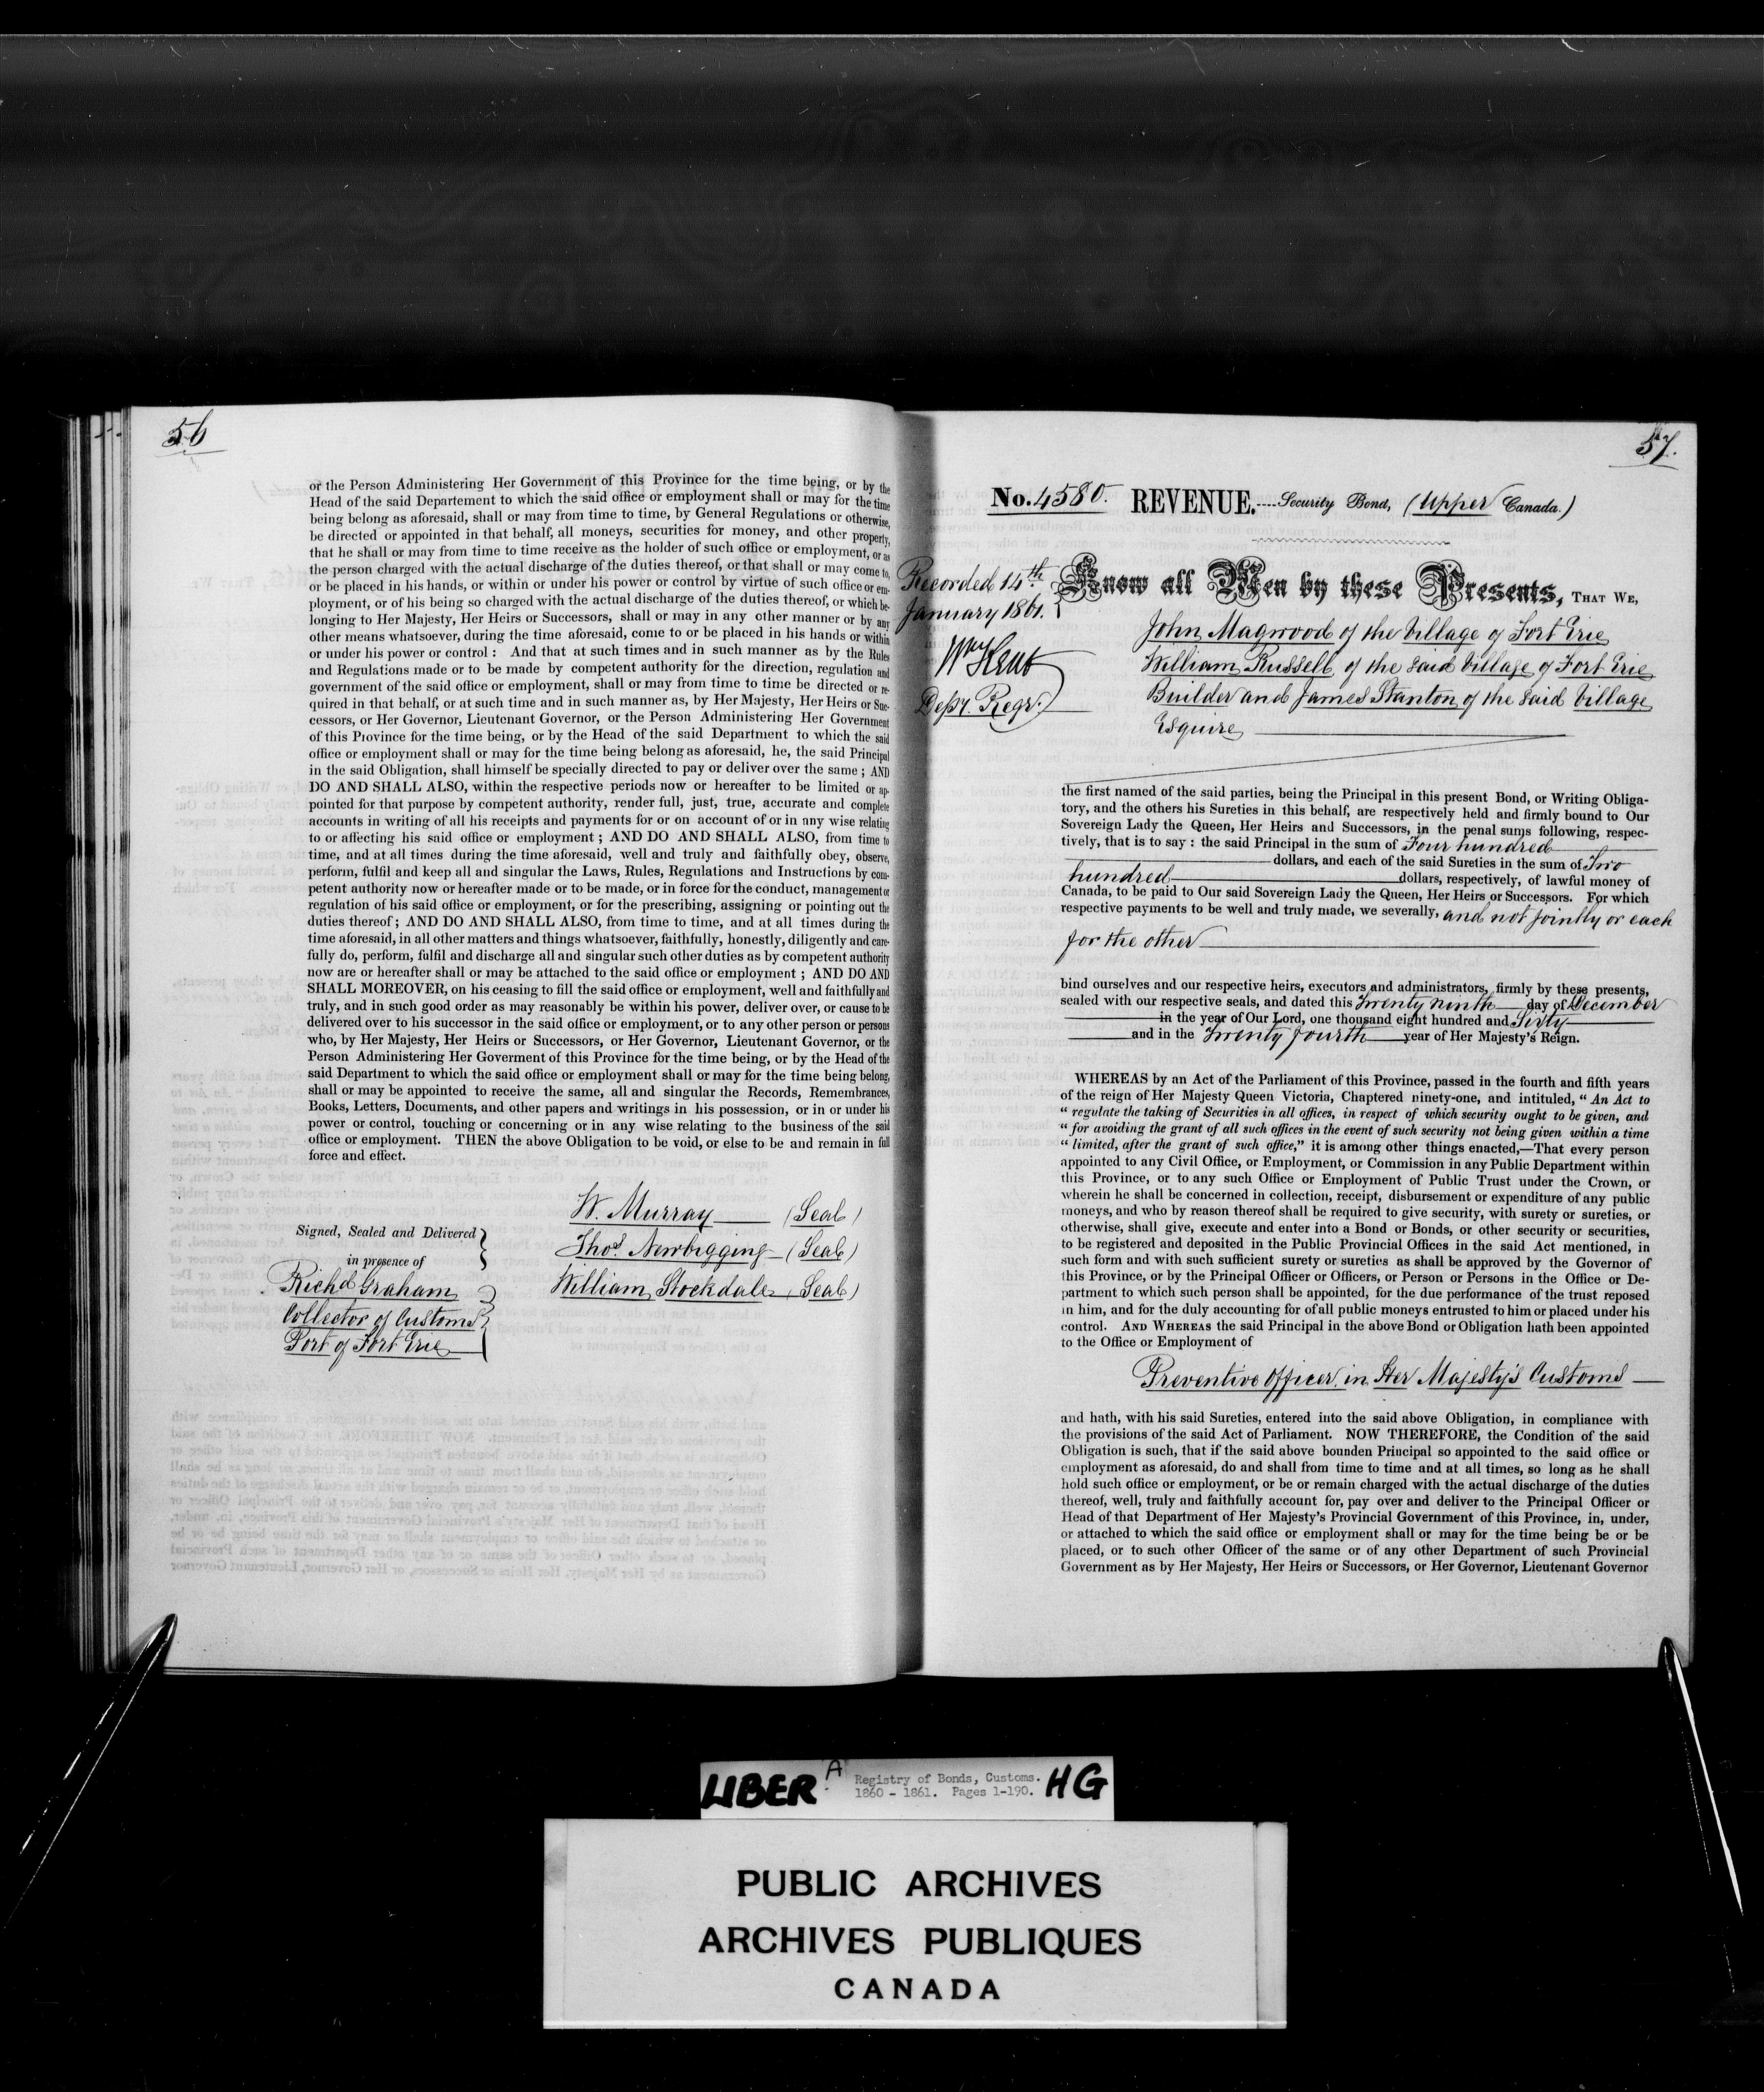 56
or the Person Administering Her Government of this Province for the time being, or by the
Head of the said Departement to which the said office or employment shall or may for the time
being belong as aforesaid, shall or may from time to time, by General Regulations or otherwise,
be directed or appointed in that behalf, all moneys, securities for money, and other property,
that he shall or may from time to time receive as the holder of such office or employment, or as
the person charged with the actual discharge of the duties thereof, or that shall or may come to,
or be placed in his hands, or within or under his power or control by virtue of such office or em-
ployment, or of his being so charged with the actual discharge of the duties thereof, or which be-
longing to Her Majesty, Her Heirs or Successors, shall or may in any other manner or by any
other means whatsoever, during the time aforesaid, come to or be placed in his hands or within
or under his power or control : And that at such times and in such manner as by the Rules
and Regulations made or to be made by competent authority for the direction, regulation and
government of the said office or employment, shall or may from time to time be directed or re-
quired in that behalf, or at such time and in such manner as, by Her Majesty, Her Heirs or Suc-
cessors, or Her Governor, Lieutenant Governor, or the Person Administering Her Government
of this Province for the time being, or by the Head of the said Department to which the said
office or employment shall or may for the time being belong as aforesaid, he, the said Principal
in the said Obligation, shall himself be specially directed to pay or deliver over the same ; AND
DO AND SHALL ALSO, within the respective periods now or hereafter to be limited or ap-
pointed for that purpose by competent authority, render full, just, true, accurate and complete
accounts in writing of all his receipts and payments for or on account of or in any wise relating
to or affecting his said office or employment ; AND DO AND SHALL ALSO, from time to
time, and at all times during the time aforesaid, well and truly and faithfully obey, observe,
perform, fulfil and keep all and singular the Laws, Rules, Regulations and Instructions by com-
petent authority now or hereafter made or to be made, or in force for the conduct, management or
regulation of his said office or employment, or for the prescribing, assigning or pointing out the
duties thereof ; AND DO AND SHALL ALSO, from time to time, and at all times during the
time aforesaid, in all other matters and things whatsoever, faithfully, honestly, diligently and care-
fully do, perform, fulfil and discharge all and singular such other duties as by competent authority
now are or hereafter shall or may be attached to the said office or employment ; AND DO AND
SHALL MOREOVER, on his ceasing to fill the said office or employment, well and faithfully and
truly, and in such good order as may reasonably be within his power, deliver over, or cause to be
delivered over to his successor in the said office or employment, or to any other person or persons
who, by Her Majesty, Her Heirs or Successors, or Her Governor, Lieutenant Governor, or the
Person Administering Her Goverment of this Province for the time being, or by the Head of the
said Department to which the said office or employment shall or may for the time being belong,
shall or may be appointed to receive the same, all and singular the Records, Remembrances,
Books, Letters, Documents, and other papers and writings in his possession, or in or under his
power or control, touching or concerning or in any wise relating to the business of the said
office or employment. THEN the above Obligation to be void, or else to be and remain in full
force and effect.
W. Murray (Seal)
Signed, Sealed and Delivered
Thos. Newbigging (Seal)
in presence of
William Stockdale (Seal)
Richd Graham
Collector of Customs
Port of Fort Erie
57.
No. 4580. REVENUE.----Security Bond, (Upper Canada.)
Recorded 14th
January 1861.
Wm Kent
Depy. Regr.
Know all Men by these Presents, THAT WE,
John Magwood of the Village of Fort Erie
William Russell of the said Village of Fort Erie
Builder and James Stanton of the said Village
Esquire
the first named of the said parties, being the Principal in this present Bond, or Writing Obliga-
tory, and the others his Sureties in this behalf, are respectively held and firmly bound to Our
Sovereign Lady the Queen, Her Heirs and Successors, in the penal sums following, respec-
tively, that is to say : the said Principal in the sum of Four hundred
dollars, and each of the said Sureties in the sum of Two
hundred dollars, respectively, of lawful money of
Canada, to be paid to Our said Sovereign Lady the Queen, Her Heirs or Successors. For which
respective payments to be well and truly made, we severally, and not jointly or each
for the other
bind ourselves and our respective heirs, executors and administrators, firmly by these presents,
sealed with our respective seals, and dated this Twenty ninth day of December
in the year of Our Lord, one thousand eight hundred and Sixty
and in the Twenty fourth year of Her Majesty's Reign.
WHEREAS by an Act of the Parliament of this Province, passed in the fourth and fifth years
of the reign of Her Majesty Queen Victoria, Chaptered ninety-one, and intituled, “ An Act to
“ regulate the taking of Securities in all offices, in respect of which security ought to be given, and
“ for avoiding the grant of all such offices in the event of such security not being given within a time
“ limited, after the grant of such office,” it is among other things enacted,—That every person
appointed to any Civil Office, or Employment, or Commission in any Public Department within
this Province, or to any such Office or Employment of Public Trust under the Crown, or
wherein he shall be concerned in collection, receipt, disbursement or expenditure of any public
moneys, and who by reason thereof shall be required to give security, with surety or sureties, or
otherwise, shall give, execute and enter into a Bond or Bonds, or other security or securities,
to be registered and deposited in the Public Provincial Offices in the said Act mentioned, in
such form and with such sufficient surety or sureties as shall be approved by the Governor of
this Province, or by the Principal Officer or Officers, or Person or Persons in the Office or De-
partment to which such person shall be appointed, for the due performance of the trust reposed
in him, and for the duly accounting for of all public moneys entrusted to him or placed under his
control. AND WHEREAS the said Principal in the above Bond or Obligation hath been appointed
to the Office or Employment of
Preventive Officer in Her Majesty's Customs
and hath, with his said Sureties, entered into the said above Obligation, in compliance with
the provisions of the said Act of Parliament. NOW THEREFORE, the Condition of the said
Obligation is such, that if the said above bounden Principal so appointed to the said office or
employment as aforesaid, do and shall from time to time and at all times, so long as he shall
hold such office or employment, or be or remain charged with the actual discharge of the duties
thereof, well, truly and faithfully account for, pay over and deliver to the Principal Officer or
Head of that Department of Her Majesty's Provincial Government of this Province, in, under,
or attached to which the said office or employment shall or may for the time being be or be
placed, or to such other Officer of the same or of any other Department of such Provincial
Government as by Her Majesty, Her Heirs or Successors, or Her Governor, Lieutenant Governor
LIBER A Registry of Bonds, Customs. HG
1860 - 1861. Pages 1-190.
PUBLIC ARCHIVES
ARCHIVES PUBLIQUES
CANADA